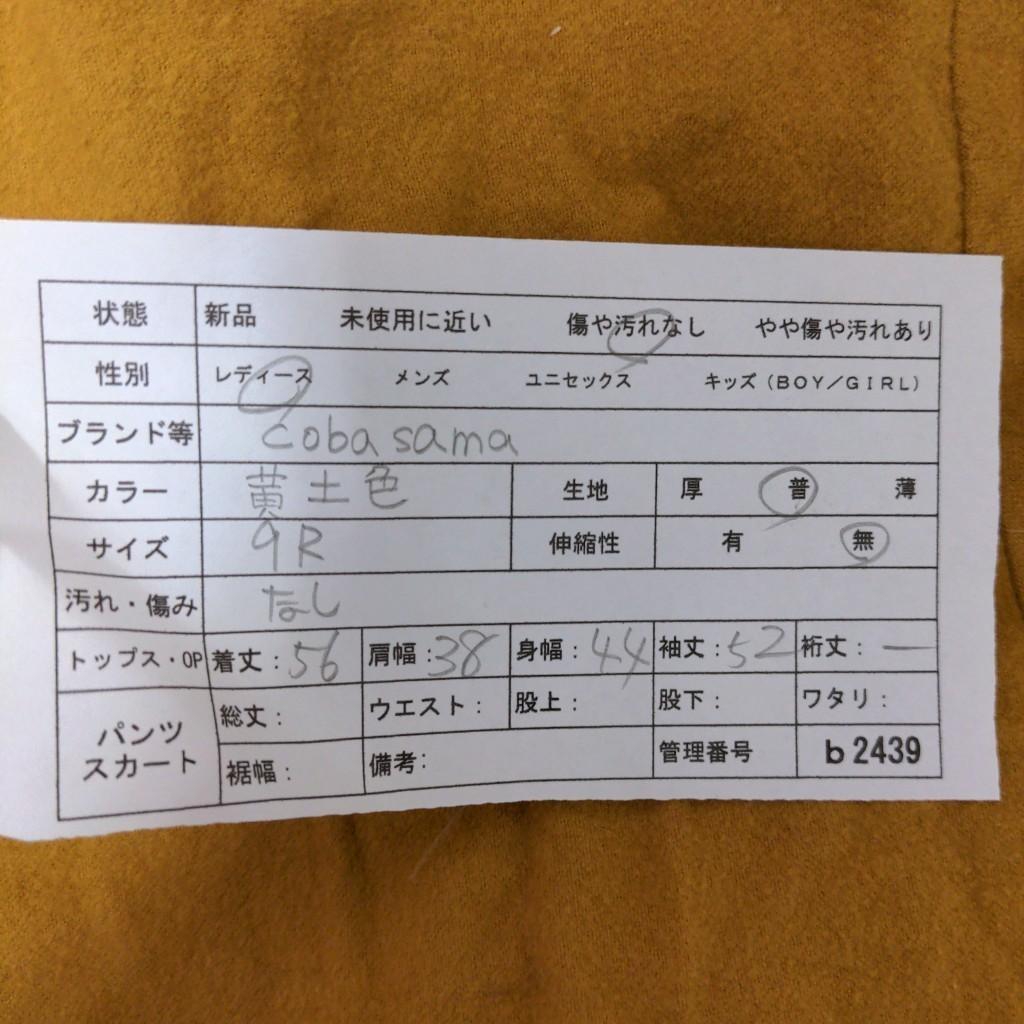 状態 新品 未使用に近い 傷や汚れなし やや傷や汚れあり
性別 レディース メンズ ユニセックス キッズ（BOY／GIRL）
ブランド等 cobasama
カラー 黄土色 生地 厚 普 薄
サイズ 9R 伸縮性 有 無
汚れ・傷み なし
トップス・OP 着丈：56 肩幅：38 身幅：44 袖丈：52 裄丈：—
パンツ スカート 総丈： ウエスト： 股上： 股下： ワタリ：
裾幅： 備考： 管理番号 b2439